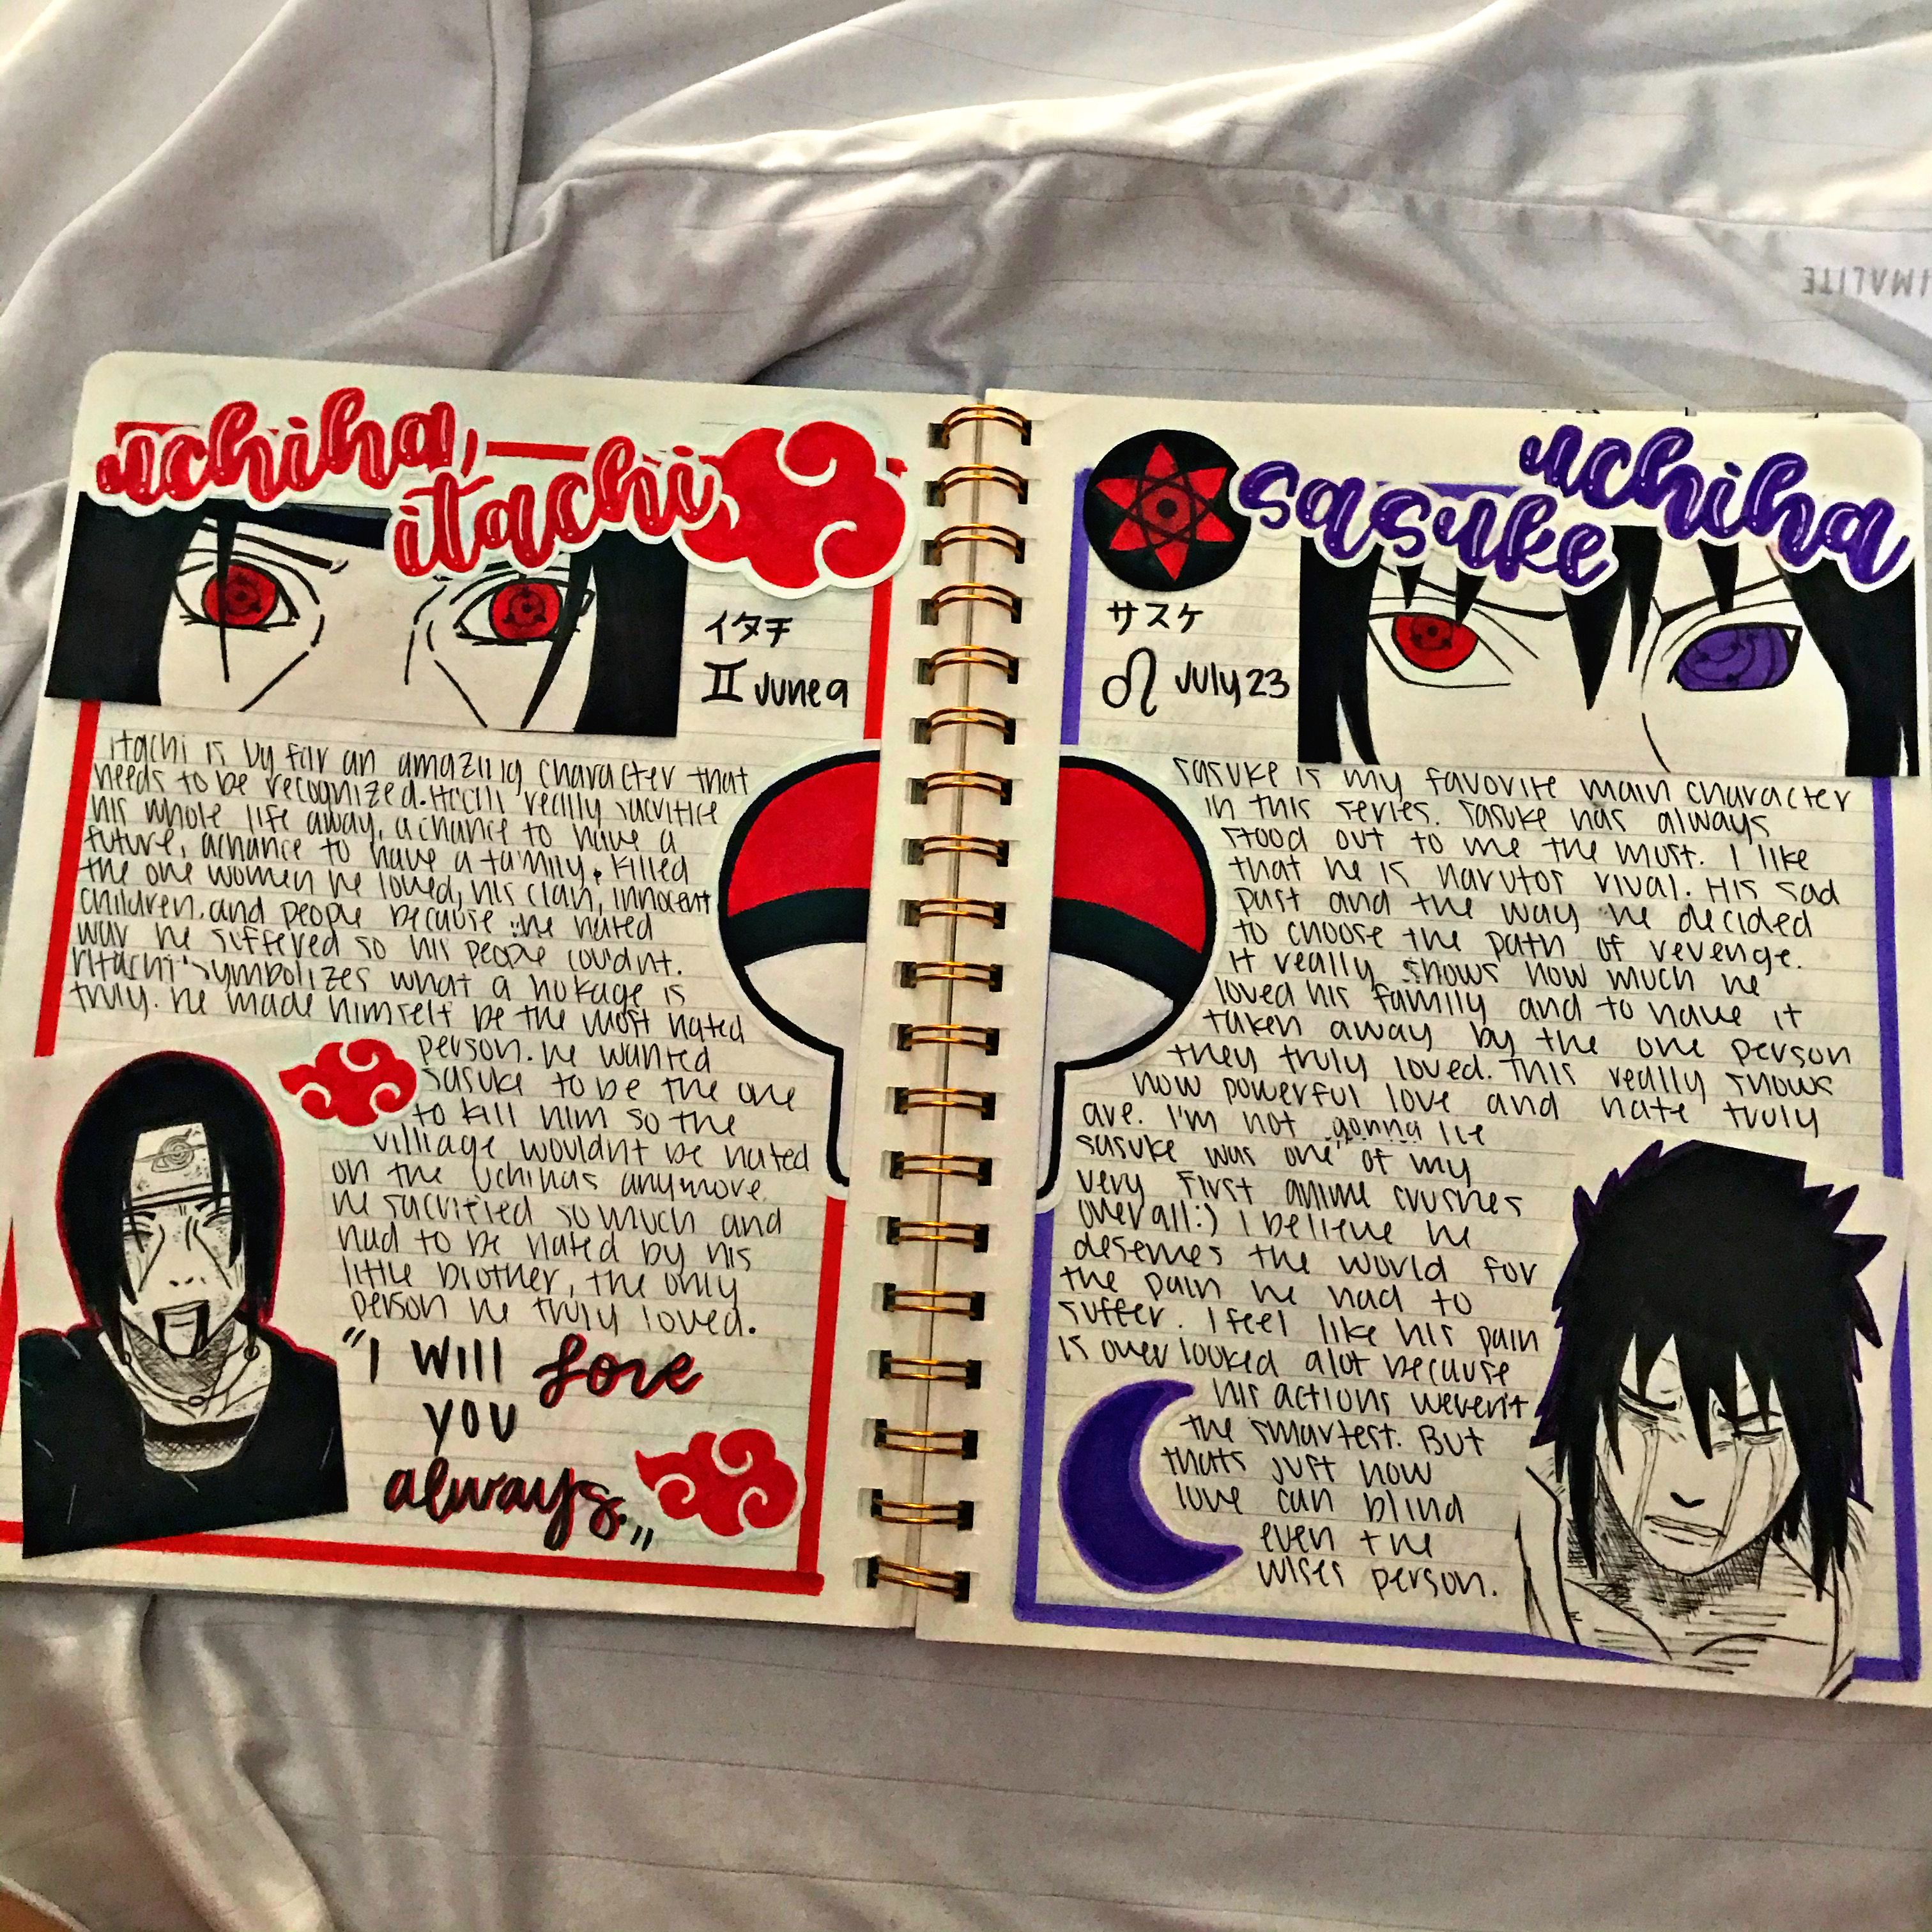 uchiha,
itachi
イタチ
♊ June 9
itachi is by far an amazing character that
needs to be recognized. really sacrifice
his whole life away, a chance to have a
future, achance to have a family. killed
the one women he loved, his clan, innocent
children, and people because he hated
war he siffered so his people coudnt.
itachi symbolizes what a hokage is
truly. he made himself be the most hated
person. he wanted
sasuke to be the one
to kill him so the
villiage wouldnt be hated
on the Uchihas anymore
he sacrified so much and
had to be hated by his
little brother, the only
person he truly loved.
"I will love
you
always."
sasuke uchiha
サスケ
♌ July 23
sasuke is my favorite main character
in this series. sasuke has always
stood out to me the most. I like
that he is narutos rival. His sad
past and the way he decided
to choose the path of revenge.
it really shows how much he
loved his family and to have it
taken away by the one person
they truly loved. This really shows
how powerful love and hate truly
are. I'm not gonna lie
sasuke was one of my
very first anime crushes
overall:) I believe he
deserves the world for
the pain he had to
suffer. I feel like his pain
is over looked alot because
his actions weren't
the smartest. But
thats just how
love can blind
even the
wises person.
IMALITE